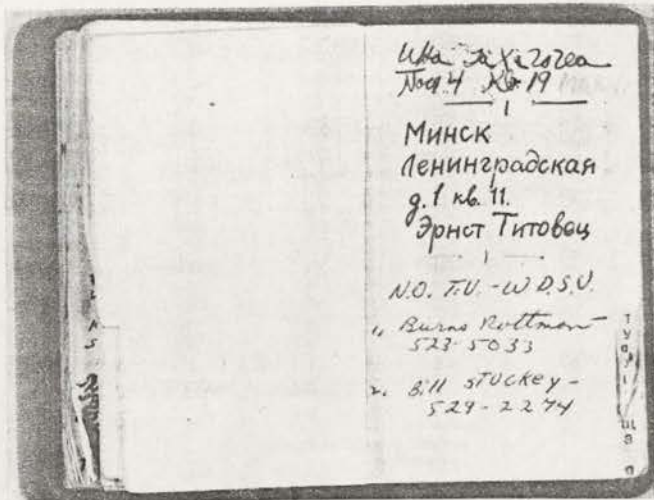 Под. 4 Кв 19
Минск
Ленинградская
д. 1 кв. 11.
Эрнст Титовец
N.O. T.V. - WDSU.
1, Burns Rottman
523-5033
2. Bill Stuckey -
529-2274